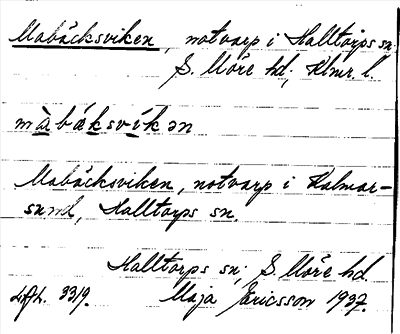 Mabäcksviken, notvarp i Halltorps sn.
S. Möre hd; Klmr. l.
màbáksvíkən
Mabäcksviken, notvarp i Kalmar-
sund, Halltorps sn.
Halltorps sn; S. Möre hd.
LAL. 3319. Maja Ericsson 1937.